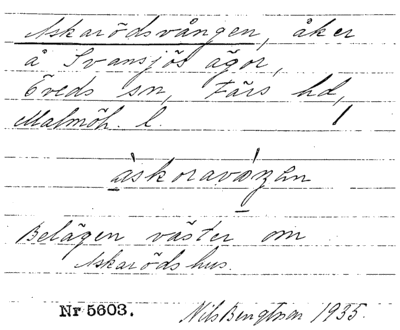 Askarödsvången, åker
å Svansjös ägor,
Öveds sn, Färs hd,
Malmöh. l.
Belägen väster om
Askaröds hus.
Nr 5603. Nils Bengtsson 1935.